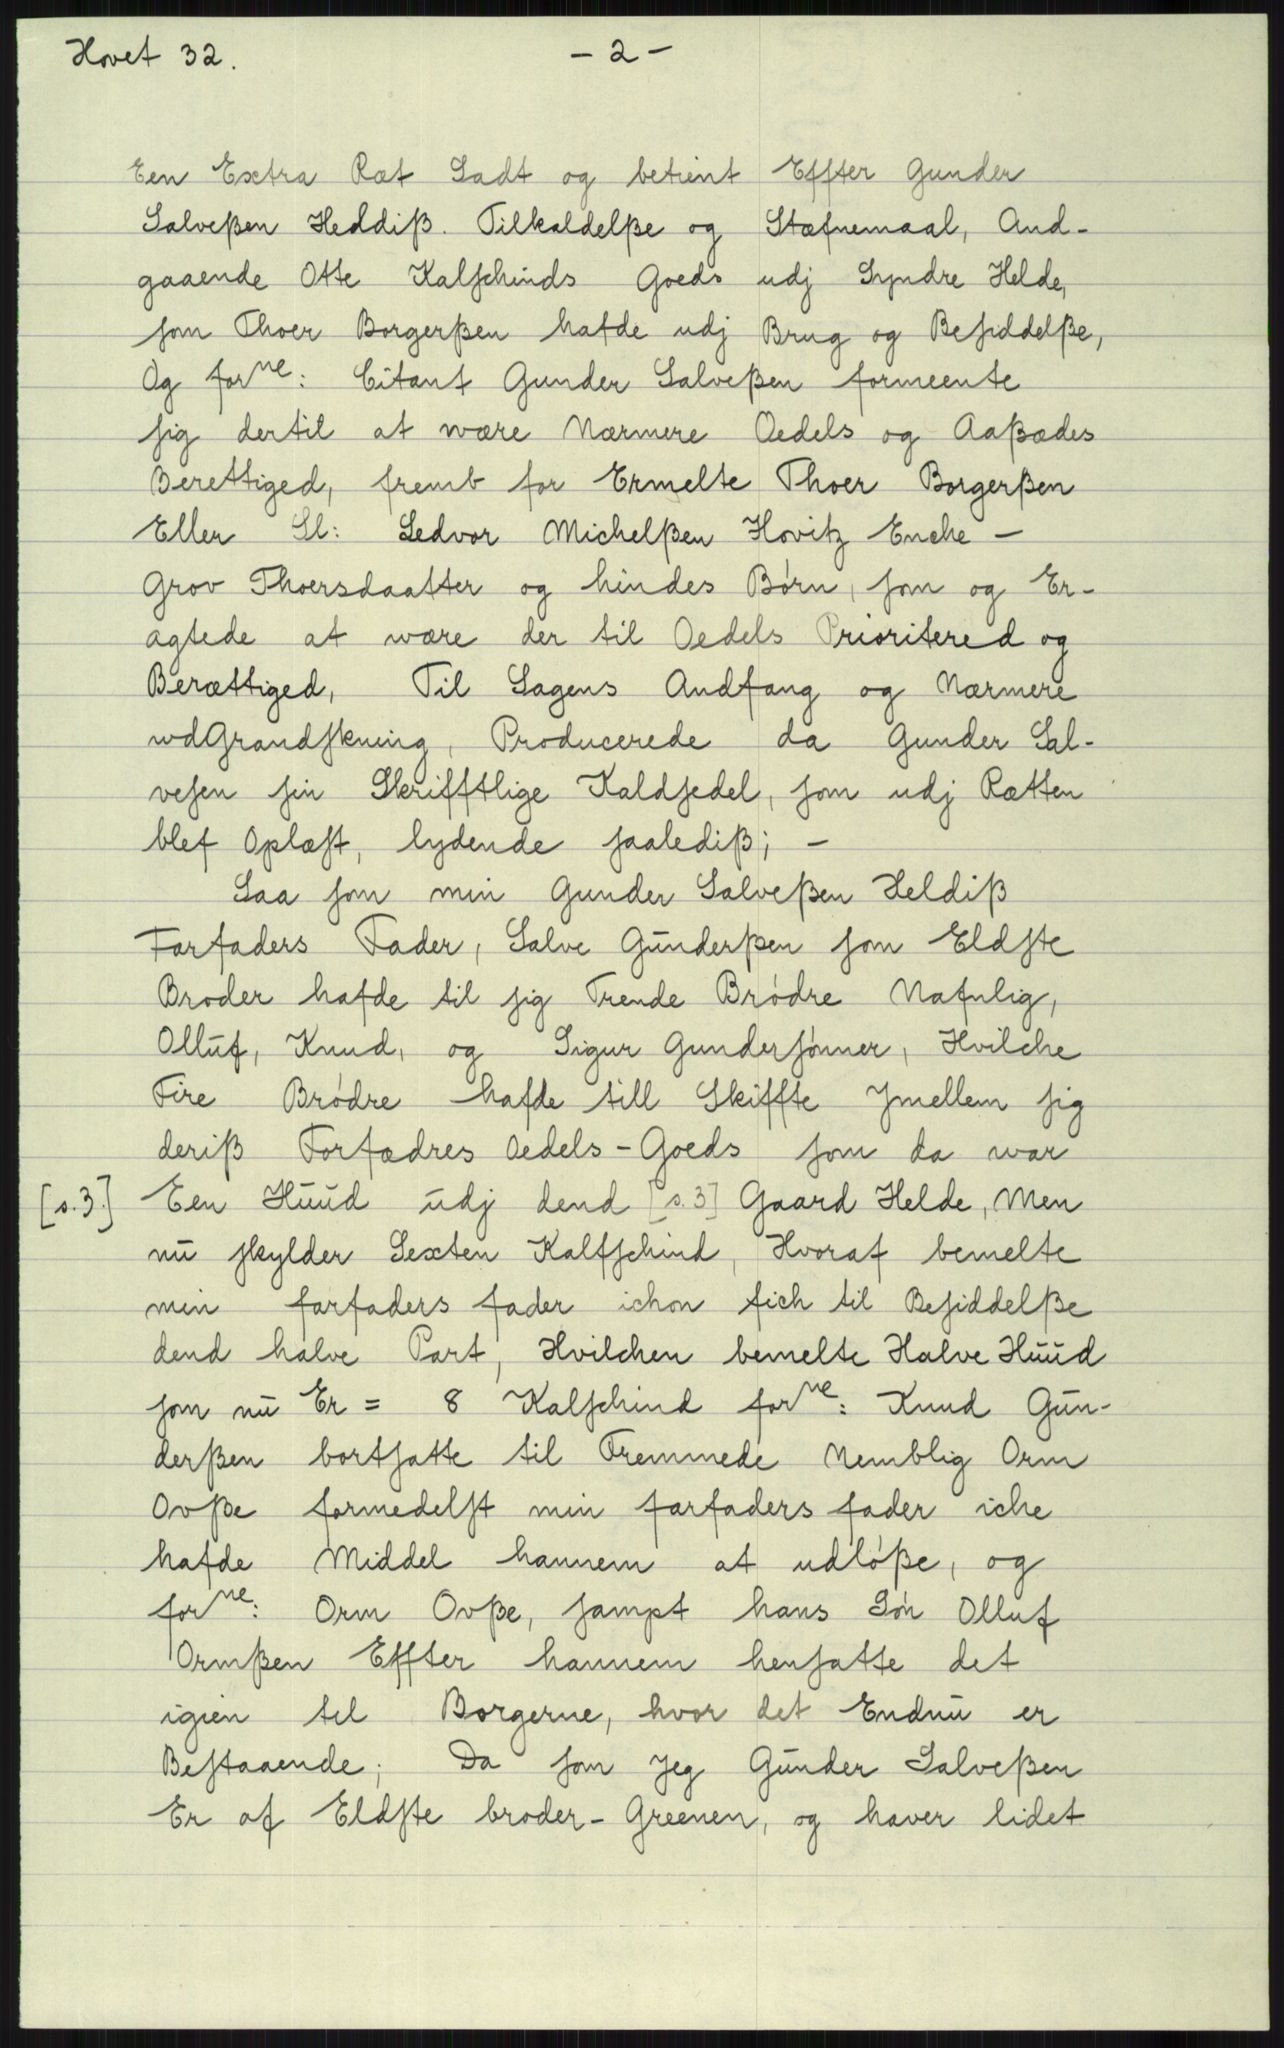 Hovet 32.
- 2 -
Een Extra Ræt Sadt og betient Effter Gunder
Salveßen Heldiß. Tilkaldelße og Stæfnemaal, And-
gaaende Otte Kalſchinds Goeds udj Syndre Helde,
ſom Thoer Borgerßen hafde udj Brug og Beſiddelße,
Og forne: Citant Gunder Salveßen formeente
ſig dertil at wære Nærmere Oedels og Aaßædes
Berettiged, fremb for Ermelte Thoer Borgerßen
Eller Sl: Sedvor Michelßen Hovitz Enche -
Grov Thoersdaatter og hindes Børn, ſom og Er-
agtede at wære der til Oedels Prioritered og
Berættiged, Til Sagens Andfang og Nærmere
wdGrandſkning, Producerede da Gunder Sal-
veſen ſin Skrifftlige Kaldſedel, ſom udj Rætten
blef Oplæſt, lydende ſaalediß; -
Saa ſom min Gunder Salveßen Heldiß
Farfaders Fader, Salve Gŭnderßen ſom Eldſte
Broder hafde til ſig Trende Brødre Nafnlig,
Ollŭf, Knud, og Sigur Gunderſønner, Hvilche
Fire Brødre hafde till Skiffte Jmellem ſig
deriß Forfædres Oedels-Goeds ſom da war
[s.3.] Een Hŭŭd ŭdj dend [s.3] Gaard Helde, Men
nŭ ſkylder Sexten Kalfſchind, Hvoraf bemelte
min farfaders fader ichon fich til Beſiddelße
dend halve Part, Hvilchen bemelte Halve Hŭŭd
ſom nŭ Er = 8 Kalſchind forne: Knud Gŭn-
derßen bortſatte til Fremmede Nemblig Orm
Ovße formedelſt min farfaders fader iche
hafde Middel hannem at udløße, og
forne: Orm Ovße, ſampt hans Søn Olluf
Ormßen Effter hannem henſatte det
igien til Borgerne, hvor det Endnŭ er
Beſtaaende; Da ſom Jeg Gŭnder Salveßen
Er af Eldſte broder-Greenen, og haver lidet